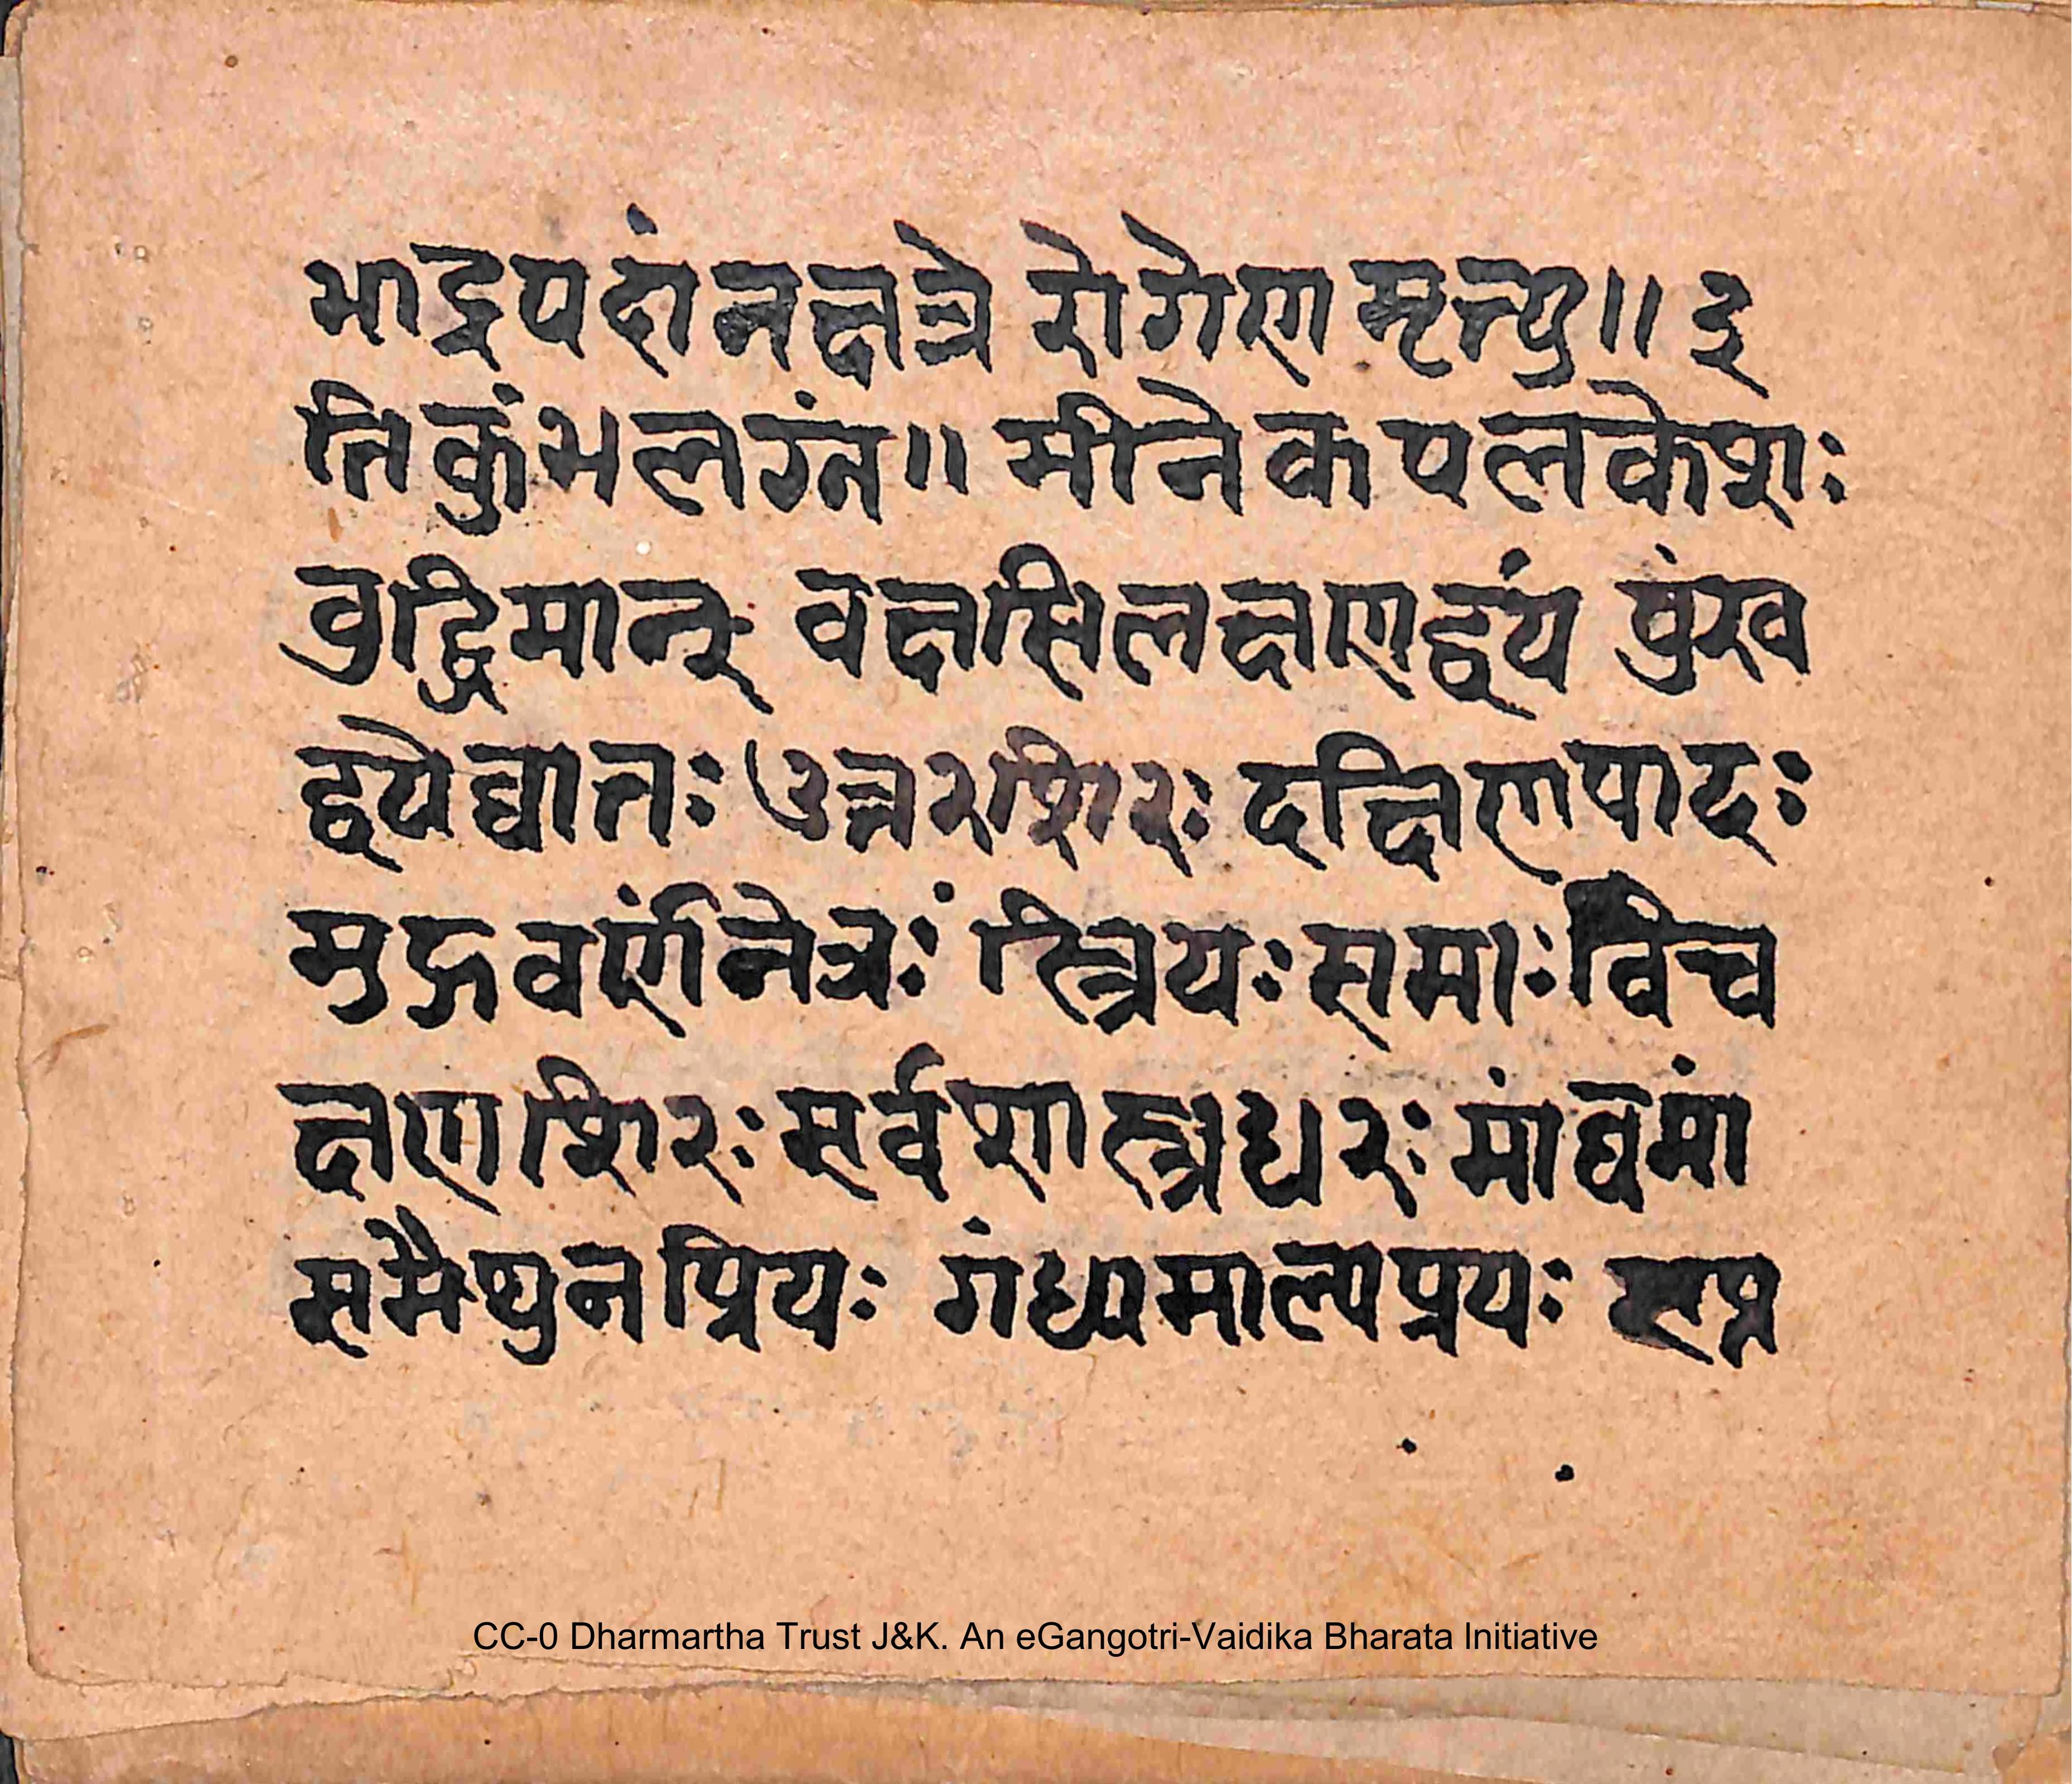 भाद्रपदांनक्षत्रे रोगेण मृत्यु॥ इ
ति कुंभलग्नं॥ मीने कपलकेशः
वुद्धिमान् वक्षसि लक्षणद्वयं षुंरव
द्वयेघातः उत्तरशिरः दक्षिणपादः
मुद्गवर्णंनेत्रःं स्त्रियः समाः विच
क्षणशिरः सर्वशास्त्रधरः मांघेमां
समैथुनप्रियः गंधमाल्यप्रयः
CC-0 Dharmartha Trust J&K. An eGangotri-Vaidika Bharata Initiative